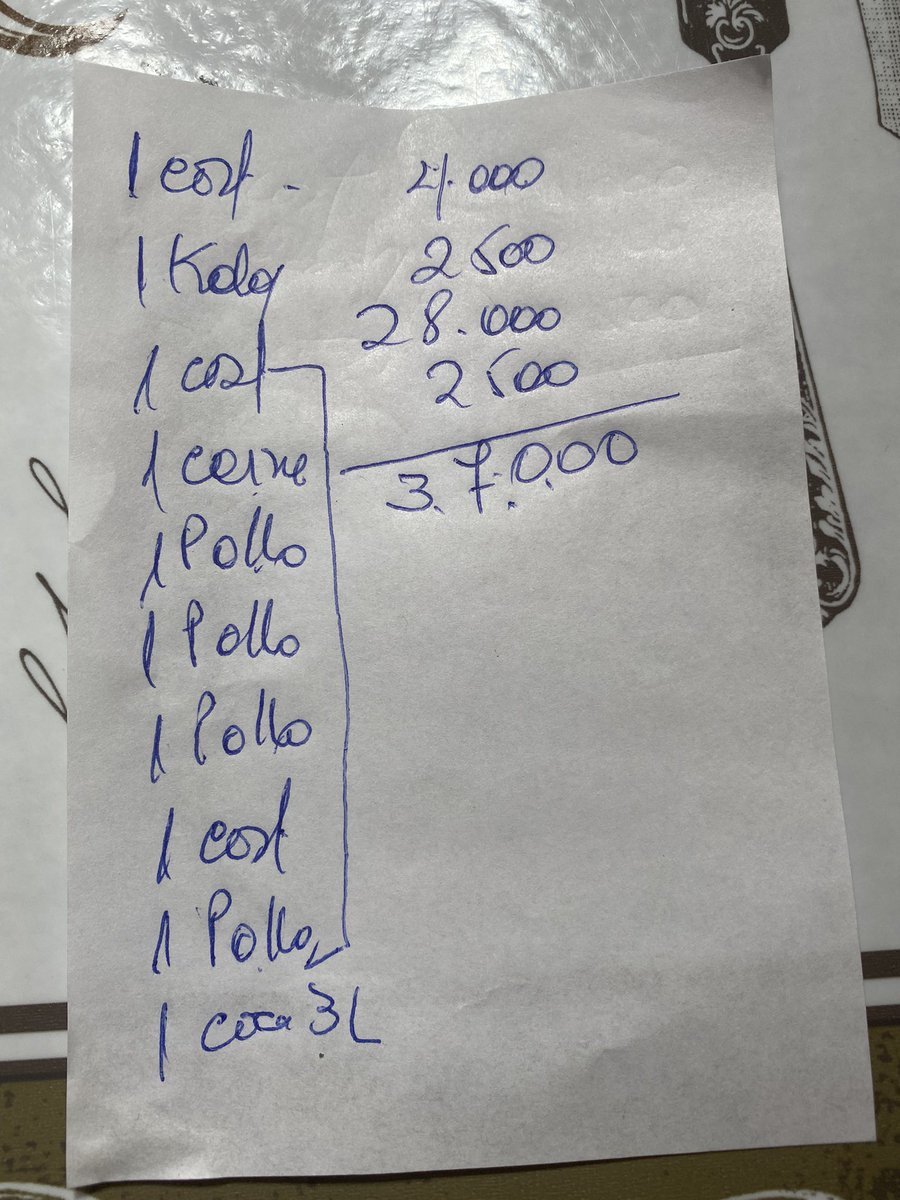 1 cost - 4.000
1 Kola 2500
1 cost 28.000
1 carne 2500
1 Pollo 37.000
1 Pollo
1 Pollo
1 cost
1 Pollo
1 coca 3L